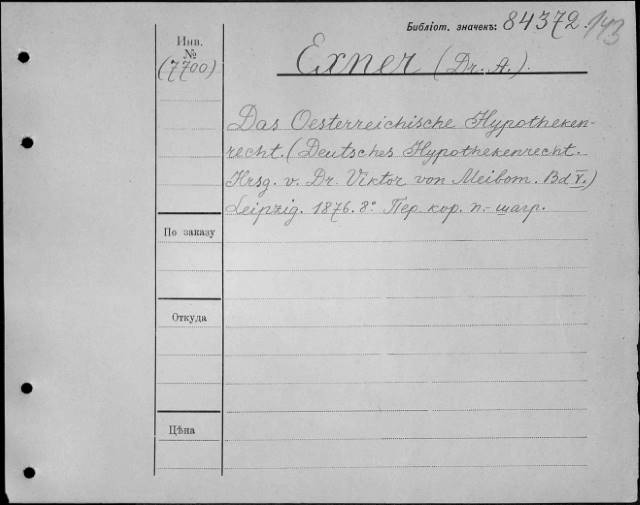 Библіот. значекъ: 84372. 143
Инв.
№
(7700)
Exner (Dr. A.).
Das Oesterreichische Hypotheken-
recht. (Deutsches Hypothekenrecht.
Hrsg. v. Dr. Viktor von Meibom. Bd V.)
Leipzig. 1876. 8º Пер. кор. п.- шагр.
По заказу
Откуда
Цѣна